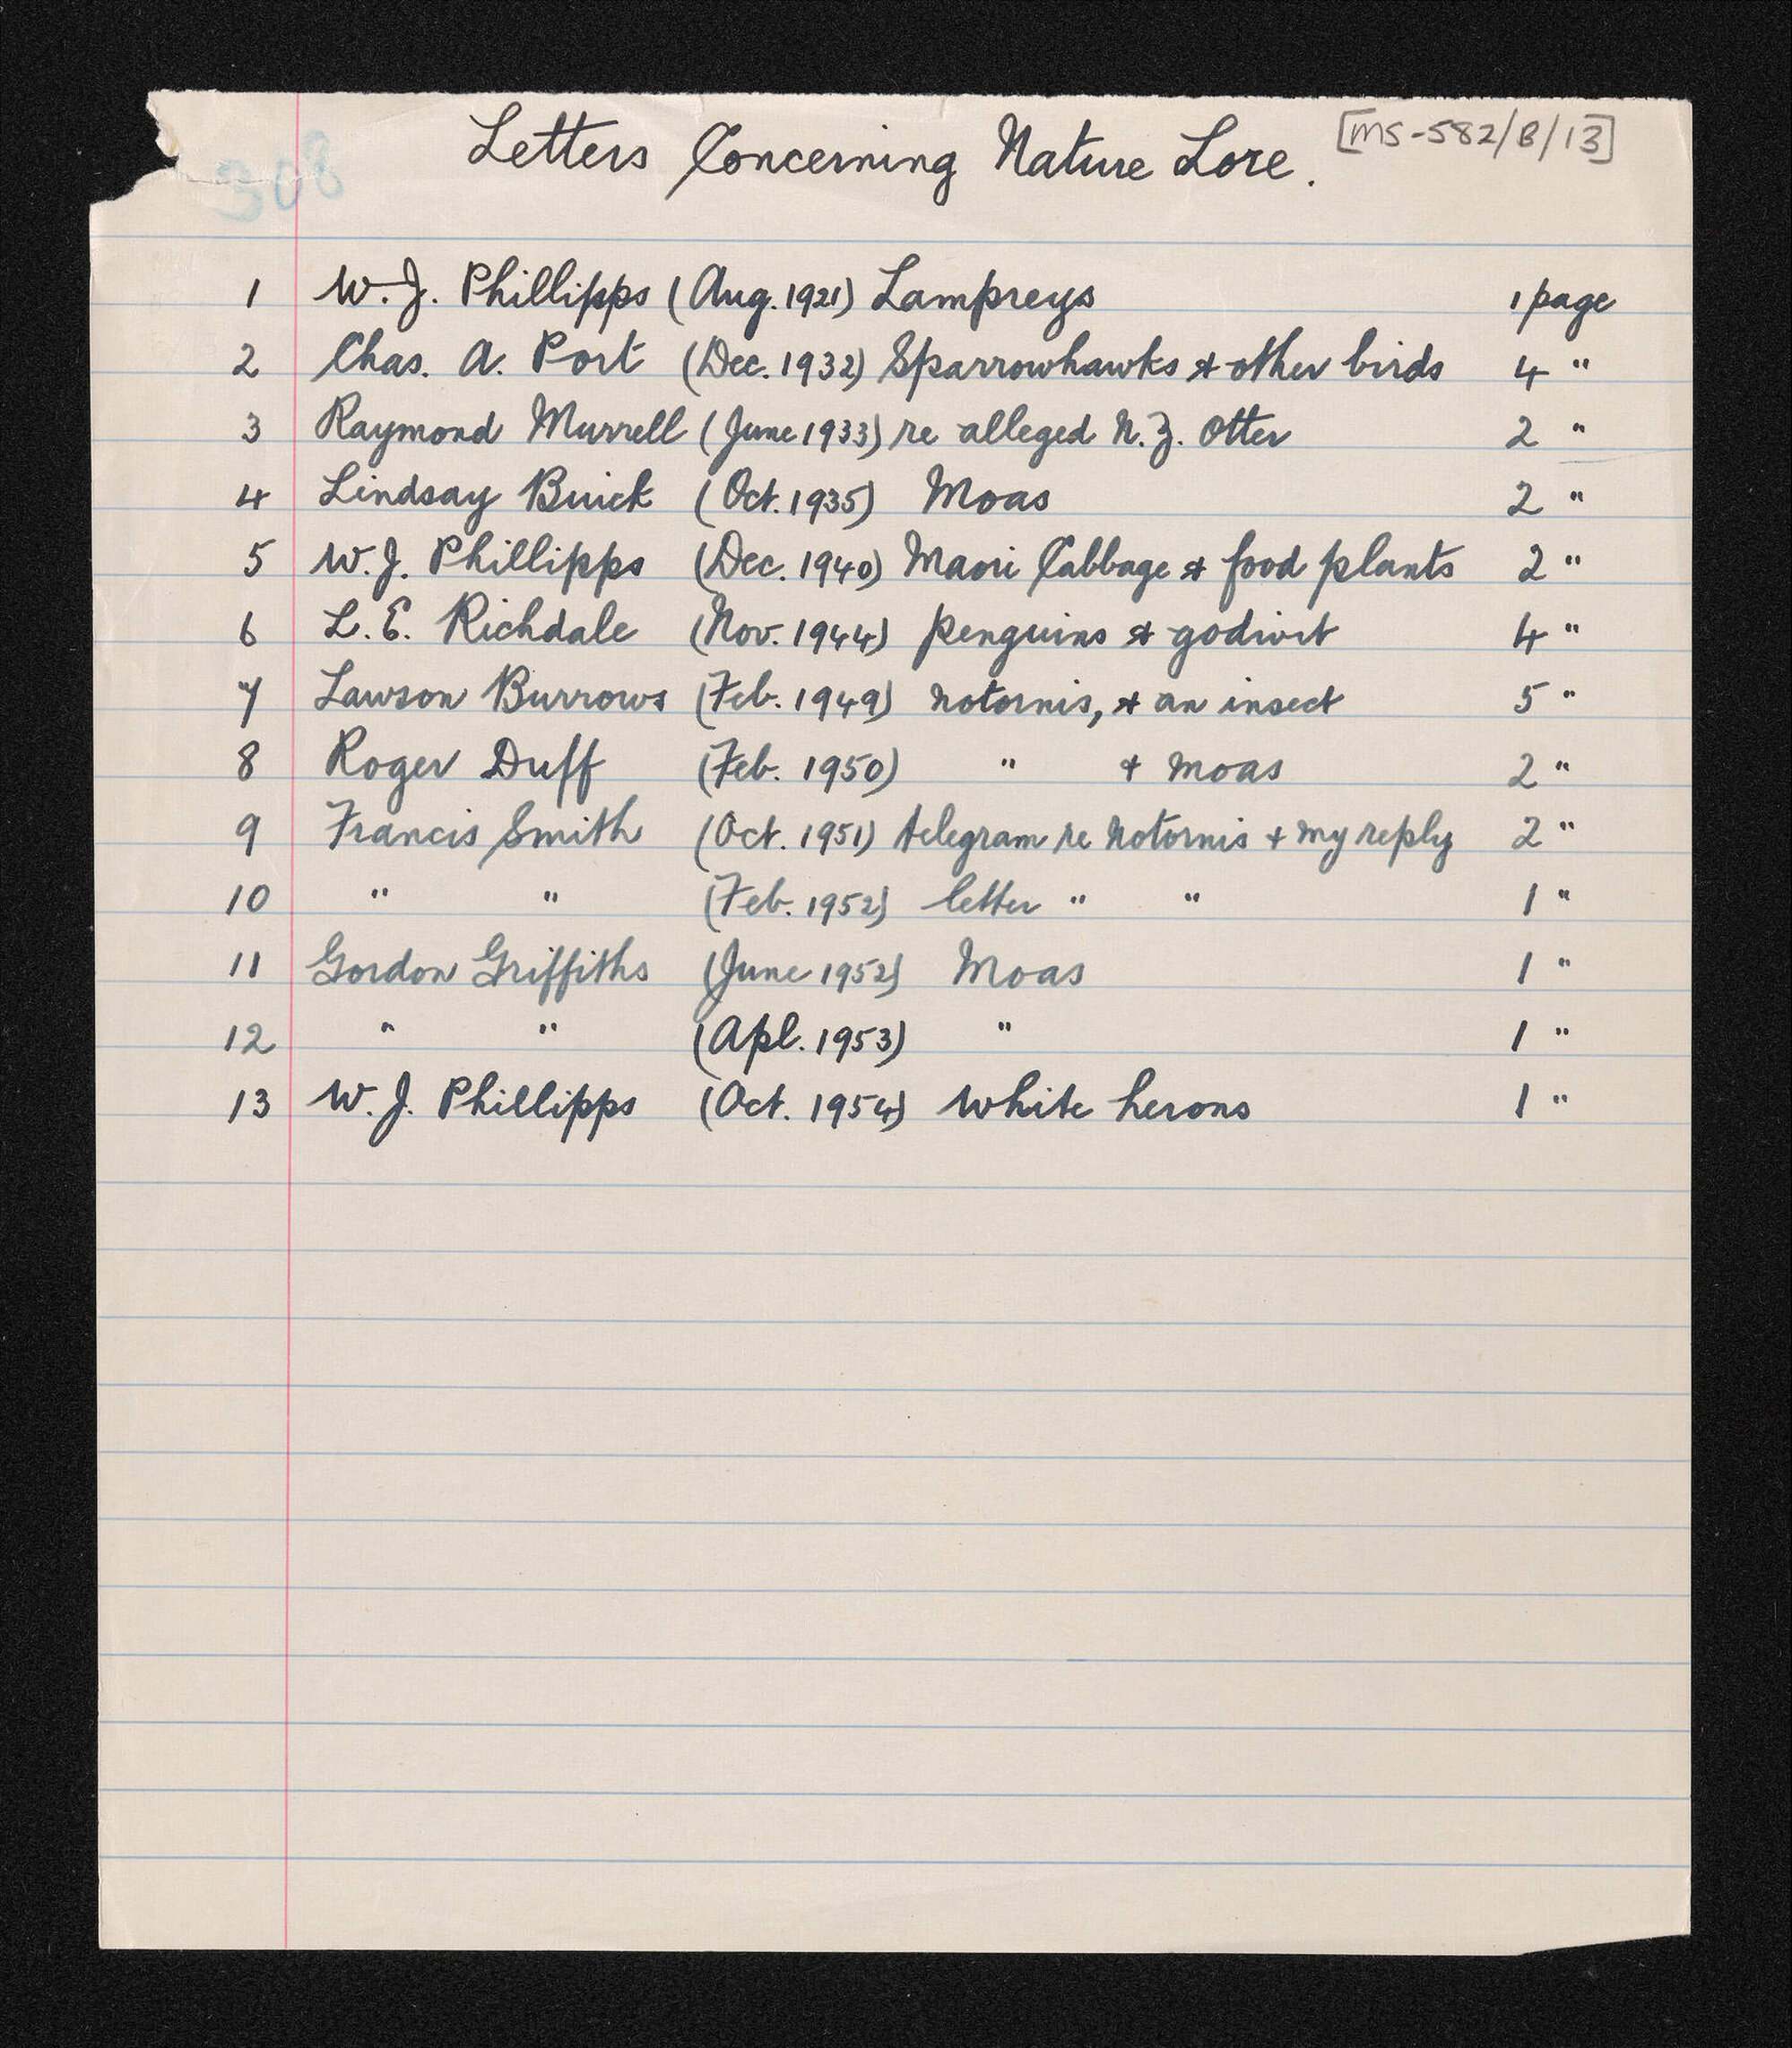 Letters Concerning Nature Lore. [MS-582/B/13]
308
1 W. J. Phillipps (Aug. 1921) Lampreys 1 page
2 Chas. A. Port (Dec. 1932) Sparrowhawks & other birds 4 "
3 Raymond Murrell (June 1933) re alleged N.Z. Otter 2 "
4 Lindsay Buick (Oct. 1935) Moas 2 "
5 W. J. Phillipps (Dec. 1940) Maori Cabbage & food plants 2 "
6 L. E. Richdale (Nov. 1944) penguins & godwit 4 "
7 Lawson Burrows (Feb. 1949) Notornis, & an insect 5 "
8 Roger Duff (Feb. 1950) " & moas 2 "
9 Francis Smith (Oct. 1951) telegram re Notornis & my reply 2 "
10 " " (Feb. 1952) letter " " 1 "
11 Gordon Griffiths (June 1952) Moas 1 "
12 " " (Apl. 1953) " 1 "
13 W. J. Phillipps (Oct. 1954) White herons 1 "